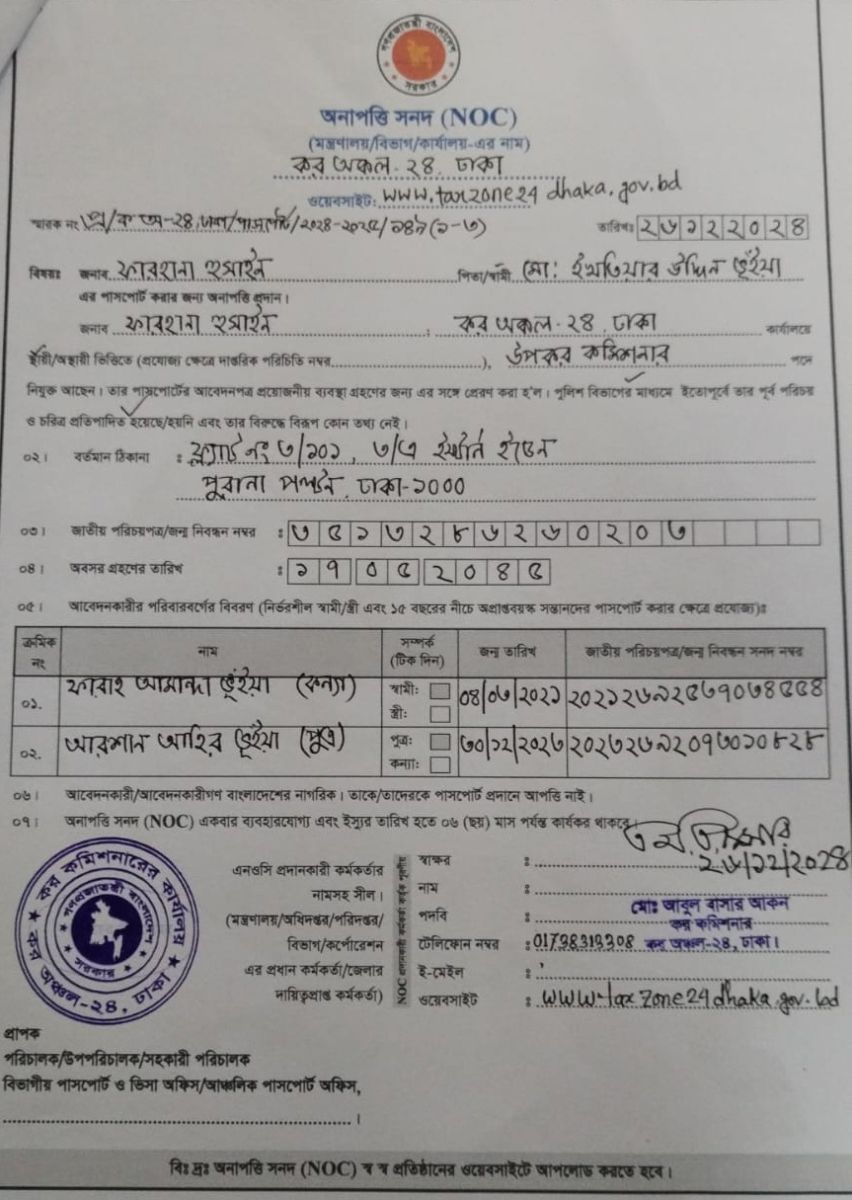 গণপ্রজাতন্ত্রী বাংলাদেশ
সরকার
অনাপত্তি সনদ (NOC)
(মন্ত্রণালয়/বিভাগ/কার্যালয়-এর নাম)
কর অঞ্চল-২৪, ঢাকা
ওয়েবসাইট: www.taxzone24 dhaka.gov.bd
স্মারক নং তারিখঃ ২৬১২২০২৪
বিষয়ঃ জনাব ফারহানা হুসাইন পিতা/স্বামী মো: ইখতিয়ার উদ্দিন ভূঁইয়া
এর পাসপোর্ট করার জন্য অনাপত্তি প্রদান।
জনাব ফারহানা হুসাইন , কর অঞ্চল-২৪, ঢাকা কার্যালয়ে
স্থায়ী/অস্থায়ী ভিত্তিতে (প্রযোজ্য ক্ষেত্রে দাপ্তরিক পরিচিতি নম্বর), উপকর কমিশনার পদে
নিযুক্ত আছেন। তার পাসপোর্টের আবেদনপত্র প্রয়োজনীয় ব্যবস্থা গ্রহণের জন্য এর সঙ্গে প্রেরণ করা হ'ল। পুলিশ বিভাগের মাধ্যমে ইতোপূর্বে তার পূর্ব পরিচয়
ও চরিত্র প্রতিপাদিত হয়েছে/হয়নি এবং তার বিরুদ্ধে বিরূপ কোন তথ্য নেই।
০২। বর্তমান ঠিকানা : ফ্ল্যাট নং ৩/১০১, ৩/এ ইস্টার্ন হাউজেন
পুরানা পল্টন, ঢাকা-১০০০
০৩। জাতীয় পরিচয়পত্র/জন্ম নিবন্ধন নম্বর : ৩৫১৩২৮৬২৬০২০৩
০৪। অবসর গ্রহণের তারিখ : ১৭০৫২০৪৫
০৫। আবেদনকারীর পরিবারবর্গের বিবরণ (নির্ভরশীল স্বামী/স্ত্রী এবং ১৫ বছরের নীচে অপ্রাপ্তবয়স্ক সন্তানদের পাসপোর্ট করার ক্ষেত্রে প্রযোজ্য)ঃ
ক্রমিক নং নাম সম্পর্ক (টিক দিন) জন্ম তারিখ জাতীয় পরিচয়পত্র/জন্ম নিবন্ধন সনদ নম্বর
০১. ফারাহ আমানা ভূঁইয়া (কন্যা) স্বামী: স্ত্রী: ০৪/০৩/২০২১ ২০২১২৬৯২৫৩৭০৩৪৫৫৪
০২. আরশান আহির ভূঁইয়া (পুত্র) পুত্র: কন্যা: ৩০/১২/২০২৩ ২০২৩২৬৯২০৭৩০১০৮২৮
০৬। আবেদনকারী/আবেদনকারীগণ বাংলাদেশের নাগরিক। তাকে/তাদেরকে পাসপোর্ট প্রদানে আপত্তি নাই।
০৭। অনাপত্তি সনদ (NOC) একবার ব্যবহারযোগ্য এবং ইস্যুর তারিখ হতে ০৬ (ছয়) মাস পর্যন্ত কার্যকর থাকবে।
২৬/১২/২০২৪
কর কমিশনারের কার্যালয়
গণপ্রজাতন্ত্রী বাংলাদেশ
সরকার
কর অঞ্চল-২৪, ঢাকা
এনওসি প্রদানকারী কর্মকর্তার
নামসহ সীল।
(মন্ত্রণালয়/অধিদপ্তর/পরিদপ্তর/
বিভাগ/কর্পোরেশন
এর প্রধান কর্মকর্তা/জেলার
দায়িত্বপ্রাপ্ত কর্মকর্তা)
স্বাক্ষর :
নাম :
মোঃ আবুল বাসার আকন
পদবি : কর কমিশনার
টেলিফোন নম্বর : 01738319308 কর অঞ্চল-২৪, ঢাকা।
ই-মেইল :
ওয়েবসাইট : www.tax zone24dhaka.gov.bd
প্রাপক
পরিচালক/উপপরিচালক/সহকারী পরিচালক
বিভাগীয় পাসপোর্ট ও ভিসা অফিস/আঞ্চলিক পাসপোর্ট অফিস,
বিঃ দ্রঃ অনাপত্তি সনদ (NOC) স্ব স্ব প্রতিষ্ঠানের ওয়েবসাইটে আপলোড করতে হবে।